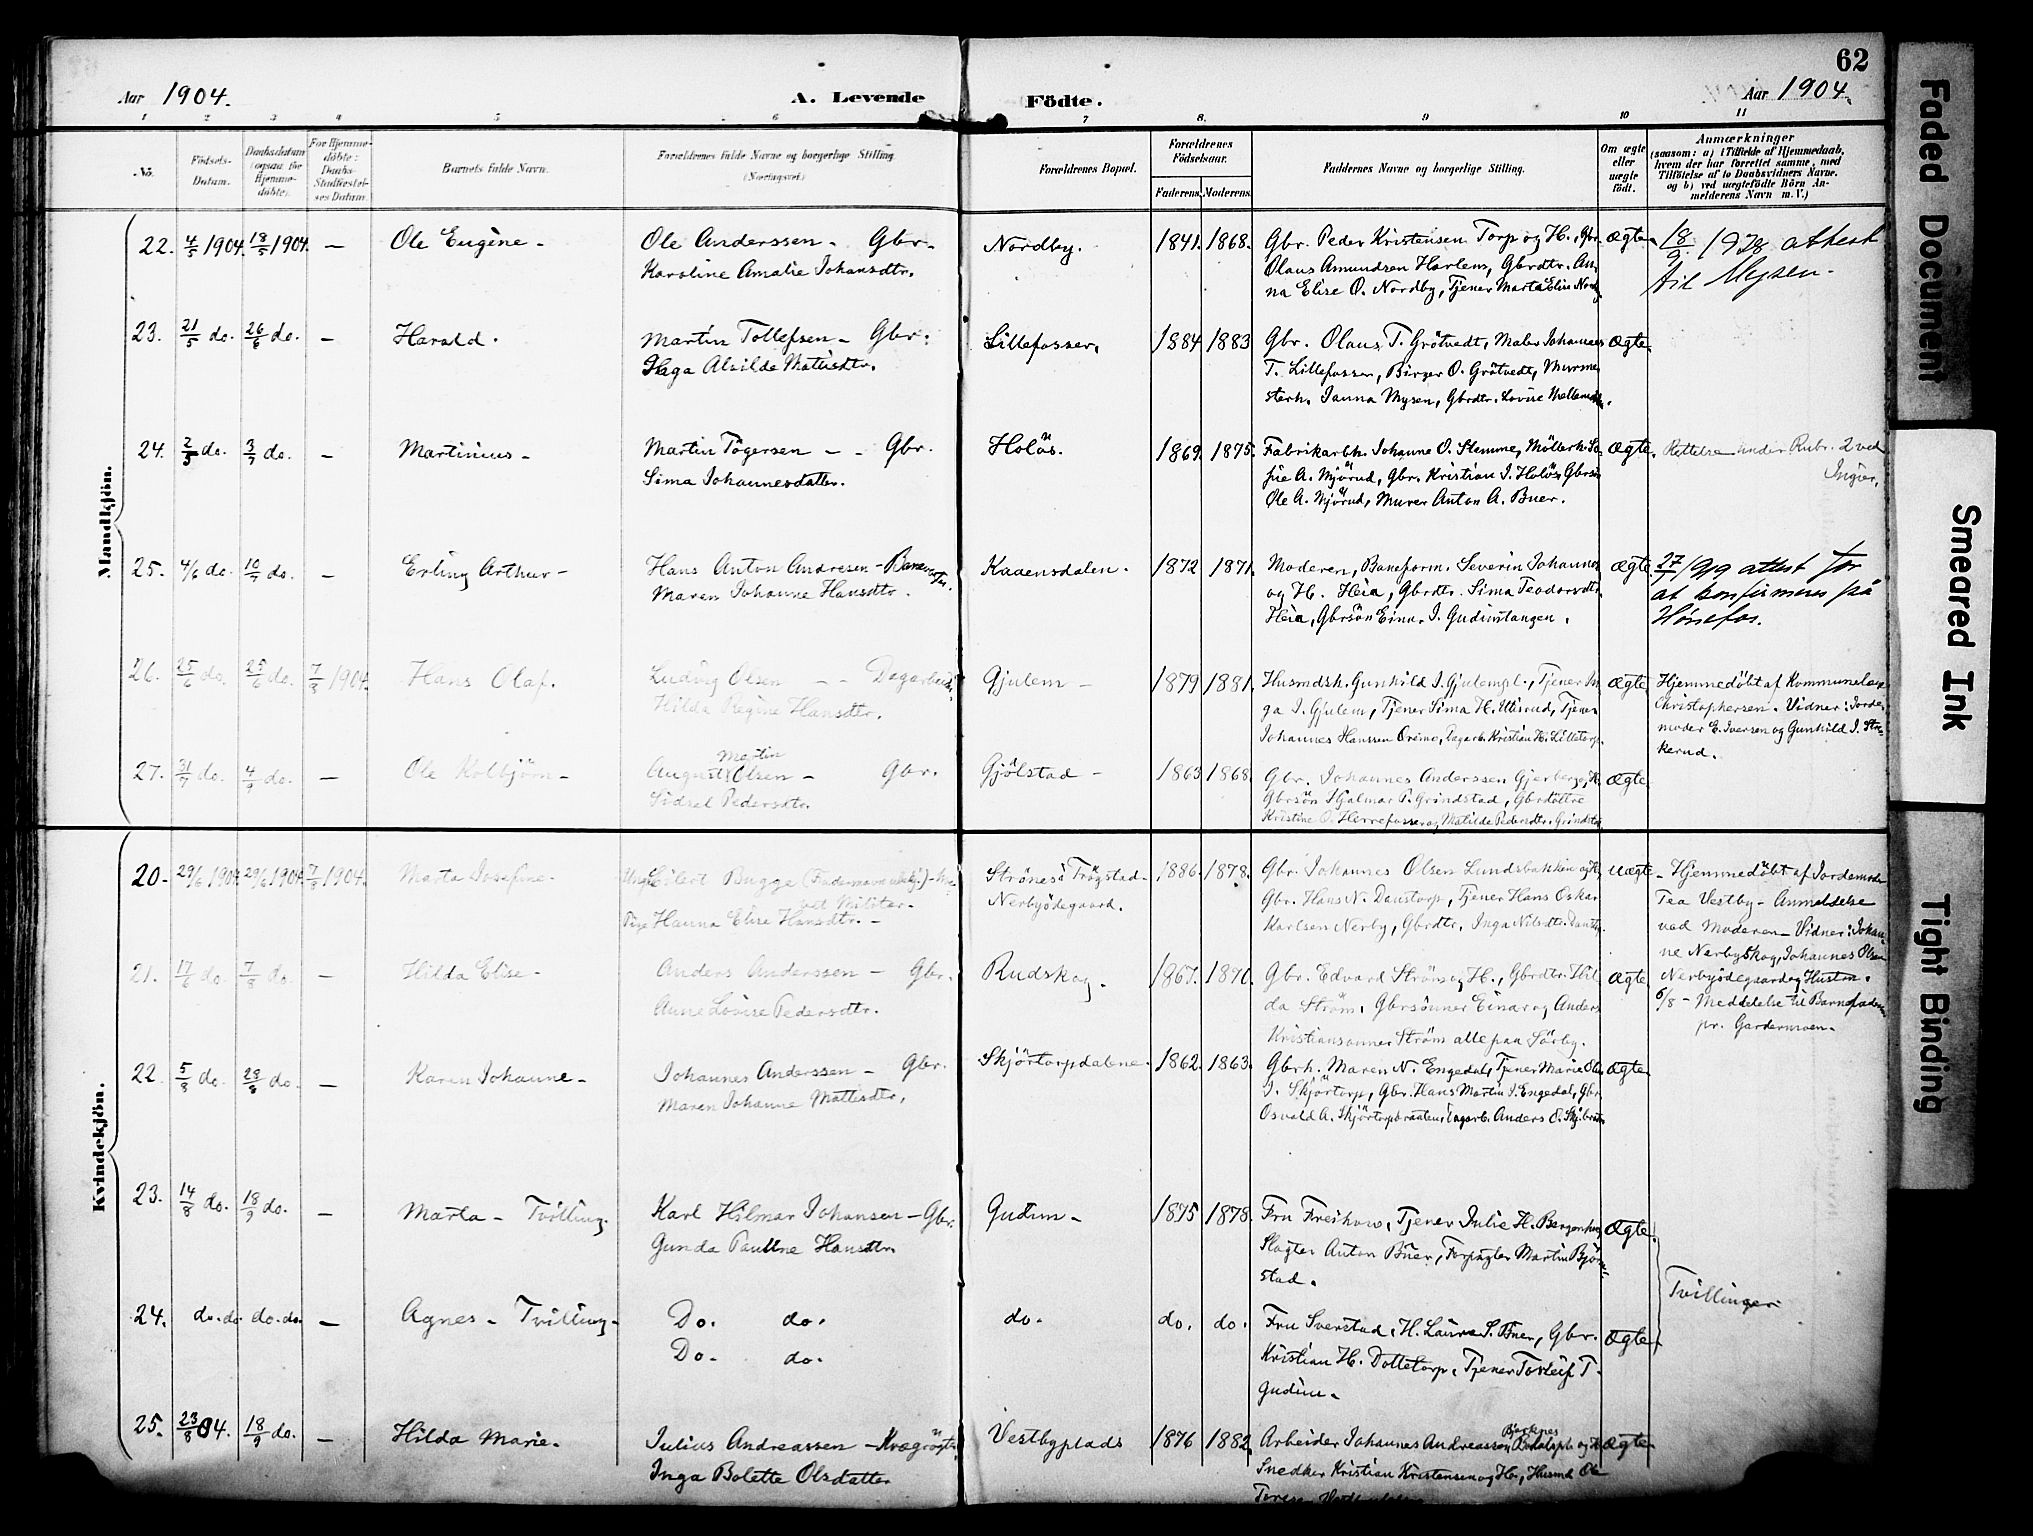 62
Aar 1904.
A. Levende Födte.
Aar 1904.
1 2 3 4 5 6 7 8. 9 10 11
No.
Födsels-Datum.
Daabsdatum (ogsaa for Hjemmedöbte).
For Hjemmedöbte: Daabs-Stadfæstelses Datum.
Barnets fulde Navn.
Forældrenes fulde Navne og borgerlige Stilling (Næringsvei.)
Forældrenes Bopæl.
Forældrenes Födselsaar.
Faderens. Moderens.
Faddernes Navne og borgerlige Stilling.
Om ægte eller uægte födt.
Anmærkninger
(saasom: a) i Tilfælde af Hjemmedaab,
hvem der har forrettet samme, med
Tilföielse af to Daabsvidners Navne.
og b) ved uægtefödte Börn An-
melderens Navn m. V.)
Mandkjön.
22. 4/5 1904. 18/5 1904. — Ole Eugène - Ole Anderssen - Gbr. Nordby. 1841. 1868. Gbr. Peder Kristensen Torp og H., Gbr. Ægte 18/9 1928 attest
Karoline Amalie Johansdtr. Olaus Amundsen Harlem, Gbrdtr. An- til Mysen.
na Elise O. Nordby, Tjener Marta Elise Nordby
23. 21/5 do. 26/6 do. — Harald. Martin Tollefsen - Gbr. Lillefosser. 1884 1883 Gbr. Olaus T. Grötvedt, Maler Johannes Ægte.
Alvilde Mattisdtr. T. Lillefosser, Birger O. Grötvedt, Murme-
sterh. Janna Mysen, Gbrdtr. Lovise
24. do. 3/7 do. — Martinius - Martin Tögersen - - Gbr. Holös. 1869. 1875. Fabrikarbh. Johanne O. Slemme, Möllerh. So- Ægte. Rettelse under Rubr. 2 ved
Sima Johannesdatter. fie A. Mjörud, Gbr. Kristian J. Holös, Gbrsön
Ole A. Mjörud, Murer Anton A. Buer.
25. 4/6 do. 10/7 do. — Erling Arthur - Hans Anton Andresen - Kaaensdalen. 1872 1871. Moderen, Baneform. Severin Johannes Ægte 27/ 1919 attest for
Maren Johanne Hansdtr. og H. Heia, Gbrdtr. Sima Teodorsdtr. at konfirmeres på
Heia, Gbrsön Einar J. Gudimtangen. Hönefos.
26. 25/6 do. 25/6 do. 7/8 1904. Hans Olaf. Ludvig Olsen - - Dagarbeider Gjulem - 1879 1881. Husmdsh. Gunhild J. Gjulempl., Tjener In- Ægte Hjemmedöbt af Kommunelæge
Hilda Regine Hansdtr. ga J. Gjulem, Tjener Sima H. Ullerud, Tjener Christophersen. Vidner: Jorde-
Johannes Hanssen, Dagarb. Kristian H. Lilletorp. moder E. Iversen og Gunhild J. Stre-
kerud.
27. 31/7 do. 4/9 do. — Ole Kolbjörn - August Martin Olsen - Gbr. Gjölstad - 1863 1868 Gbr. Johannes Anderssen Gjerberg og H. Ægte.
Sidsel Pedersdtr. Gbrsön Hjalmar P. Grindstad, Gbrdöttre
Kristine O. Herrefosser og Matilde Pedersdtr. Grindstad
Kvindekjön.
20. 29/6 1904. 29/6 1904. 7/8 1904. Marta Josefine - Eilert Bugge Strönes i Trögstad - 1886. 1878. Gbr. Johannes Olsen Lundsbakken og H. Uægte - Hjemmedöbt af Jordemoder
Militær. Nerbyödegaard. Gbr. Hans N. Daustorp, Tjener Hans Oskar Tea Vestby - Anmeldelse
Pige Hanna Elise Hansdtr. - Karlsen Nerby, Gbrdtr. Inga Nilsdtr. ved Moderen - Vidner: Johan-
ne Nerbyskog, Johannes Olsen
Nerbyödegaard og Hustru.
21. 17/6 do. 7/8 do. — Hilda Elise - Anders Anderssen - Gbr. Rudskog. 1867. 1870. Gbr. Edvard Ström og H., Gbrdtr. Hil- Ægte 6/8 - Meddelelse til Barnefaderen
Anne Lovise Pedersdtr. da Ström, Gbrsönner Einar og Anders pr. Gardermoen.
Kristianssönner Ström alle paa Sörby.
22. 5/8 do. 28/8 do. — Karen Johanne - Johannes Anderssen - Gbr. Skjörtorpdalene. 1862. 1863. Gbrh. Maren N. Engedal, Tjener Marie Ægte
Maren Johanne Mattisdtr. J. Skjörtorp, Gbr. Hans Martin J. Engedal, Gbr.
Osvald A. Skjörtorpbraaten, Dagarb. Anders
23. 14/8 do. 18/9 do. — Marta - Tvilling. Karl Hilmar Johansen - Gbr. Gudim - 1875 1878. Fru Freihow, Tjener Julie H. Ægte.
Gunda Pauline Hansdtr. Slagter Anton Buer, Forpagter Martin Björn-
stad.
Tvillinger
24. do. do. do. do. — Agnes - Tvilling. Do. do. do. do. do. Fru Sverstad, H. Laura S. Buer, Gbr. Ægte
Do. do. Kristian H. Dolletorp, Tjener Torleif T.
Gudim.
25. 23/8 04. 18/9 do. — Hilda Marie. Julius Andreassen - Kvægrögter. Vestbyplads 1876 1882. Arbeider Johannes Andreassen Ægte
Inga Bolette Olsdatter Snedker Kristian Kristensen og H., Husmd. Ole
Faded Document
Smeared Ink
Tight Binding